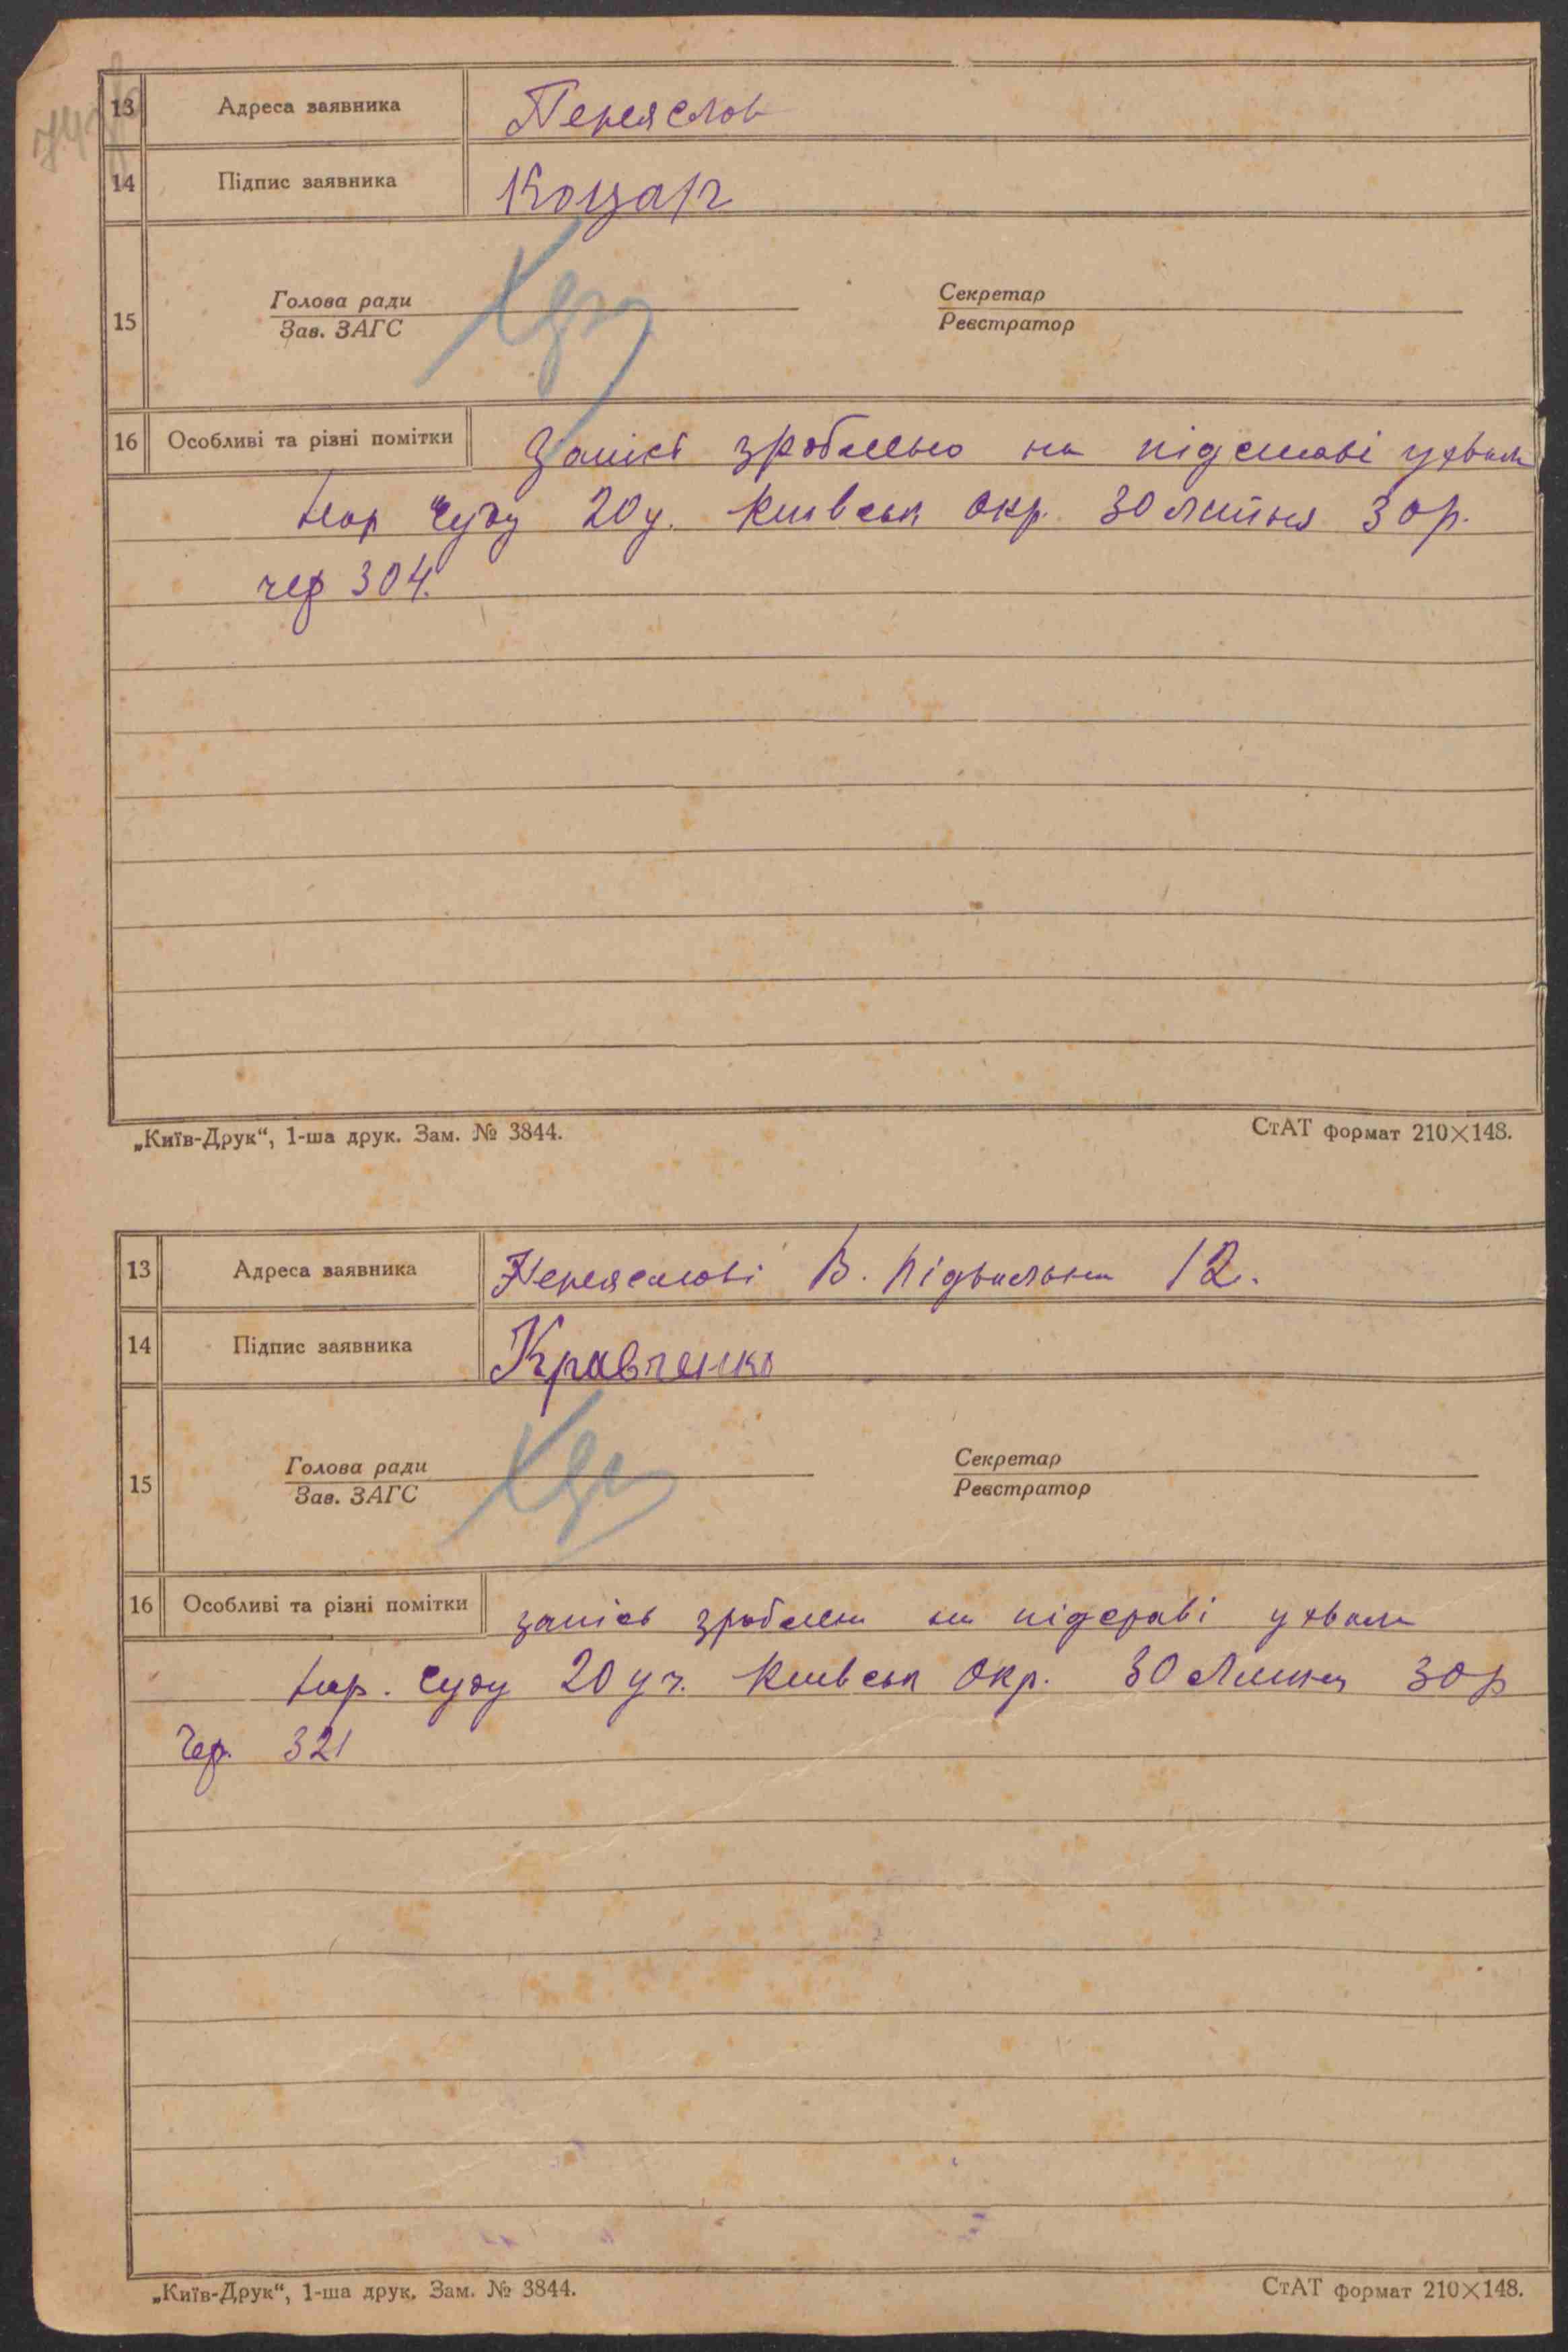 13 Адреса заявника Переяслов
14 Підпис заявника Коцар
15 Голова ради Секретар
Зав. ЗАГС Реєстратор
16 Особливі та різні помітки Запісь зроблено на підставі ухвали
Нар Суду 20 у. Київськ Окр. 30 липня 30 р.
чер 304.
„Київ-Друк“, 1-ша друк. Зам. № 3844. СтАТ формат 210×148.
13 Адреса заявника Переяслові В. Підвальна 12.
14 Підпис заявника Кравченко
15 Голова ради Секретар
Зав. ЗАГС Реєстратор
16 Особливі та різні помітки запісь зроблен на підставі ухвали
Нар. Суду 20 уч. Київськ Окр. 30 Липня 30 р
Чер. 321
„Київ-Друк“, 1-ша друк. Зам. № 3844. СтАТ формат 210×148.